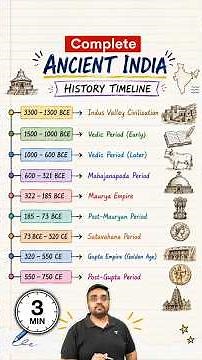 Complete
ANCIENT INDIA
HISTORY TIMELINE
3300 - 1300 BCE Indus Valley Civilisation
1500 - 1000 BCE Vedic Period (Early)
1000 - 600 BCE Vedic Period (Later)
600 - 321 BCE Mahajanapada Period
322 - 185 BCE Maurya Empire
185 - 73 BCE Post-Mauryan Period
73 BCE - 320 CE Satavahana Period
320 - 550 CE Gupta Empire (Golden Age)
550 - 750 CE Post-Gupta Period
3
MIN